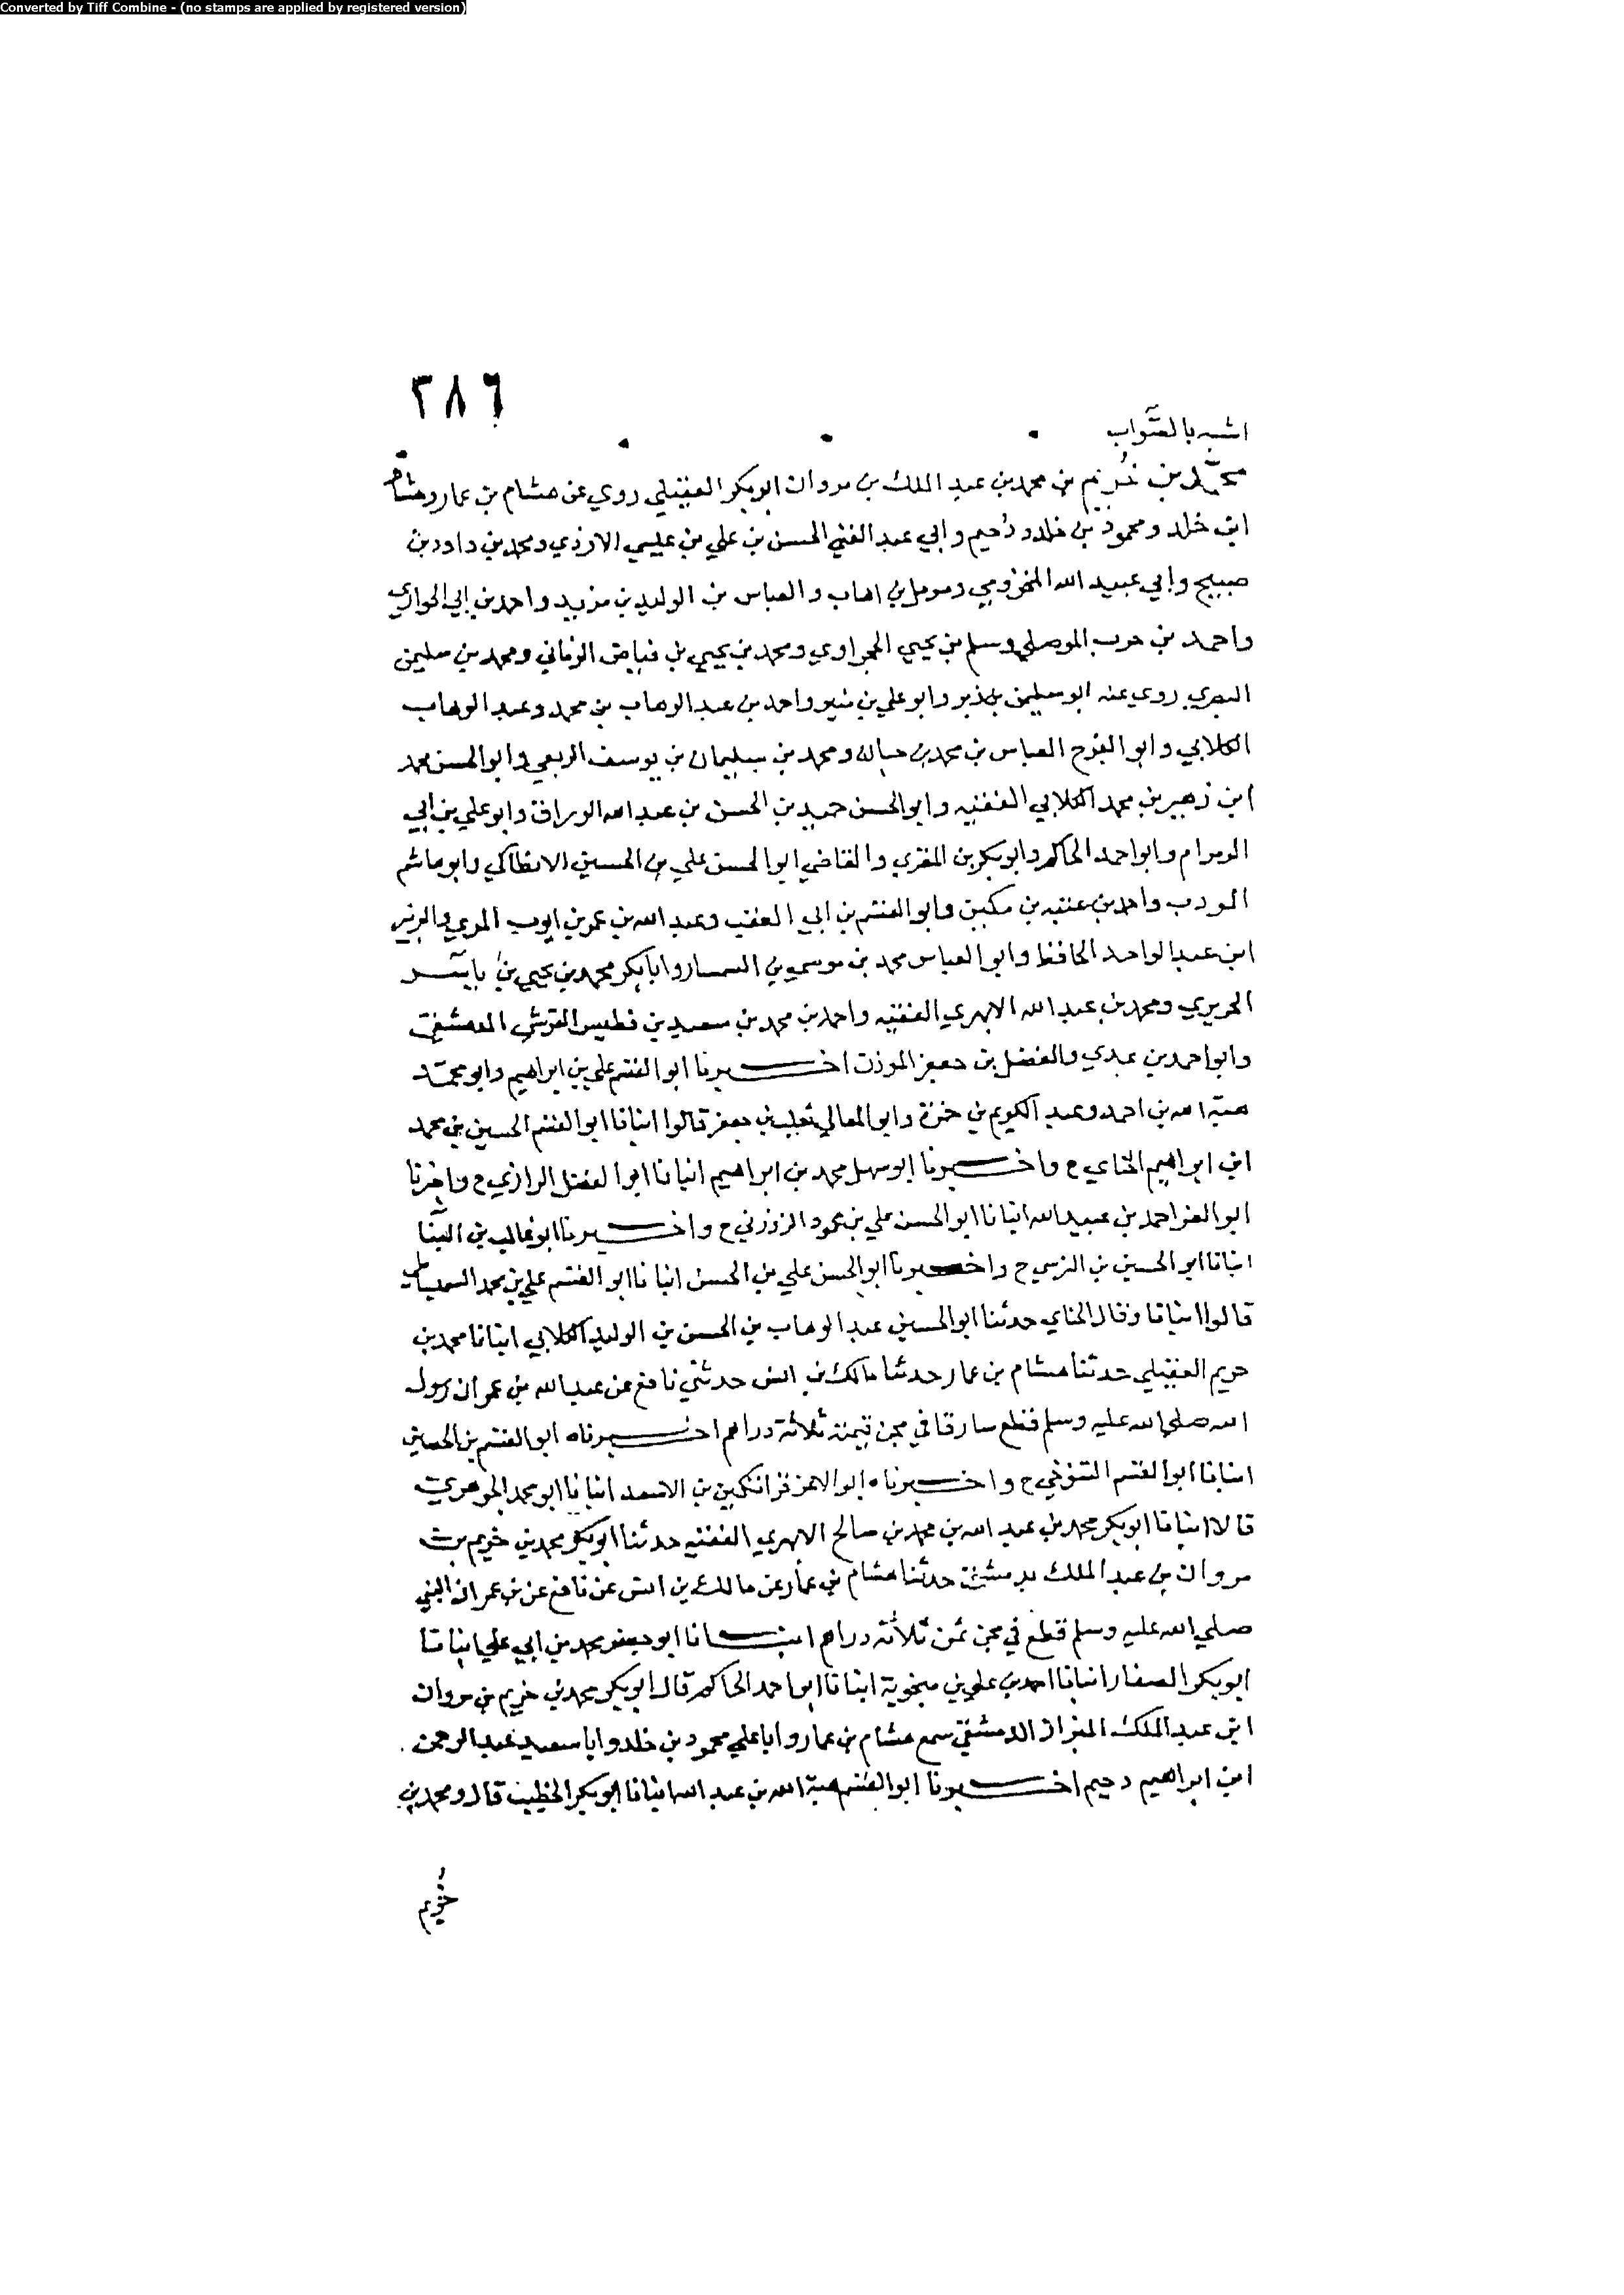 Converted by Tiff Combine - (no stamps are applied by registered version)
٢٨٦
اشبه بالصَّواب
محمّد بن خُريم بن محمد بن عبد الملك بن مروان ابوبكر العقيلي روي عن هشام بن عمار وهشام
ابن خلد ومحمود بن خلد ودُحيم وابي عبد الغني الحسن بن علي بن عيسي الازدي ومحمد بن داود بن
صبيح وابي عبيد الله المخزومي ومومل بن اهاب والعباس بن الوليد بن مزيد واحمد بن ابي الحواري
واحمد بن حرب الموصلي وسلم بن يحيي الحجراوي ومحمد بن يحيي بن فياض الزماني ومحمد بن سليمن
البصري روي عنه ابو سليمن بن زبر وابو علي بن منير واحمد بن عبد الوهاب بن محمد وعبد الوهاب
الكلابي وابو الفرج العباس بن محمد بن حباله ومحمد بن سليمان بن يوسف الربعي وابو الحسن محمد
ابن زهير بن محمد الكلابي الفقيه وابو الحسن حميد بن الحسن بن عبد الله الوراق وابو علي بن ابي
الرمرام وابو احمد الحاكم وابوبكر بن المقري والقاضي ابو الحسن علي بن الحسين الانطاكي وابو هاشم
المودب واحمد بن عتبه بن مكين وابو القسم بن ابي العقب وعبد الله بن عمر بن ايوب المري والزبير
ابن عبد الواحد الحافظ وابو العباس محمد بن موسي بن السمسار وابابكر محمد بن يحيي بن ياسر
الحريري ومحمد بن عبد الله الابهري الفقيه واحمد بن محمد بن سعيد بن فطيس القرشي الدمشقي
وابو احمد بن عدي والفضل بن جعفر الموذن اخبرنا ابو القسم علي بن ابراهيم وابو محمّد
هبة الله بن احمد وعبد الكريم بن حمزة وابو المعالي ثعلب بن جعفر قالوا انبانا ابو القسم الحسين بن محمد
ابن ابراهيم الحناي ح واخبرنا ابو سهل محمد بن ابراهيم انبانا ابو الفضل الرازي ح واخبرنا
ابو العز احمد بن عبيد الله انبانا ابو الحسن علي بن محمود الزوزني ح واخبرنا ابو غالب بن البنّا
انبانا ابو الحسين بن النرسي ح واخبرنا ابو الحسن علي بن الحسن انبانا ابو القسم علي بن محمد السميساطي
قالوا انبانا وقال الحناي حدثنا ابو الحسين عبد الوهاب بن الحسن بن الوليد الكلابي انبانا محمد بن
حريم العقيلي حدثنا هشام بن عمار حدثنا مالك بن انس حدثني نافع عن عبد الله بن عمر ان رسول
الله صلي الله عليه وسلم قطع سارقا في مجن قيمته ثلاثة دراهم اخبرناه ابو القسم بن الحصين
انبانا ابو القسم التنوخي ح واخبرناه ابو الاعز قراتكين بن الاسعد انبانا ابو محمد الجوهري
قالا انبانا ابوبكر محمد بن عبد الله بن محمد بن صالح الابهري الفقيه حدثنا ابوبكر محمد بن خريم بن
مروان بن عبد الملك بدمشق حدثنا هشام بن عمار عن مالك بن انس عن نافع عن بن عمر ان النبي
صلي الله عليه وسلم قطع في مجن ثمن ثلاثة دراهم انبانا ابو جعفر محمد بن ابي علي انبانا
ابوبكر الصفار انبانا احمد بن علي بن منجوية انبانا ابو احمد الحاكم قال ابوبكر محمد بن خريم بن مروان
ابن عبد الملك البزاز الدمشقي سمع هشام بن عمار وابا علي محمود بن خلد وابا سعيد عبد الرحمن
ابن ابراهيم دحيم اخبرنا ابو القسم هبة الله بن عبد الله انبانا ابوبكر الخطيب قال ومحمد بن
خُريم